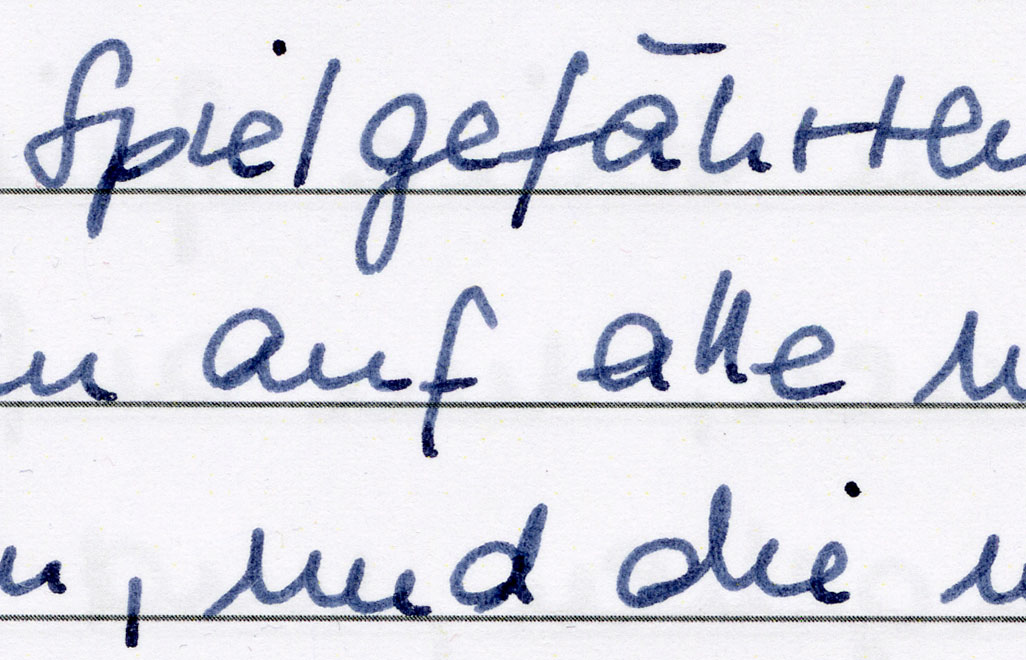 Spielgefährten
auf alle
, und die